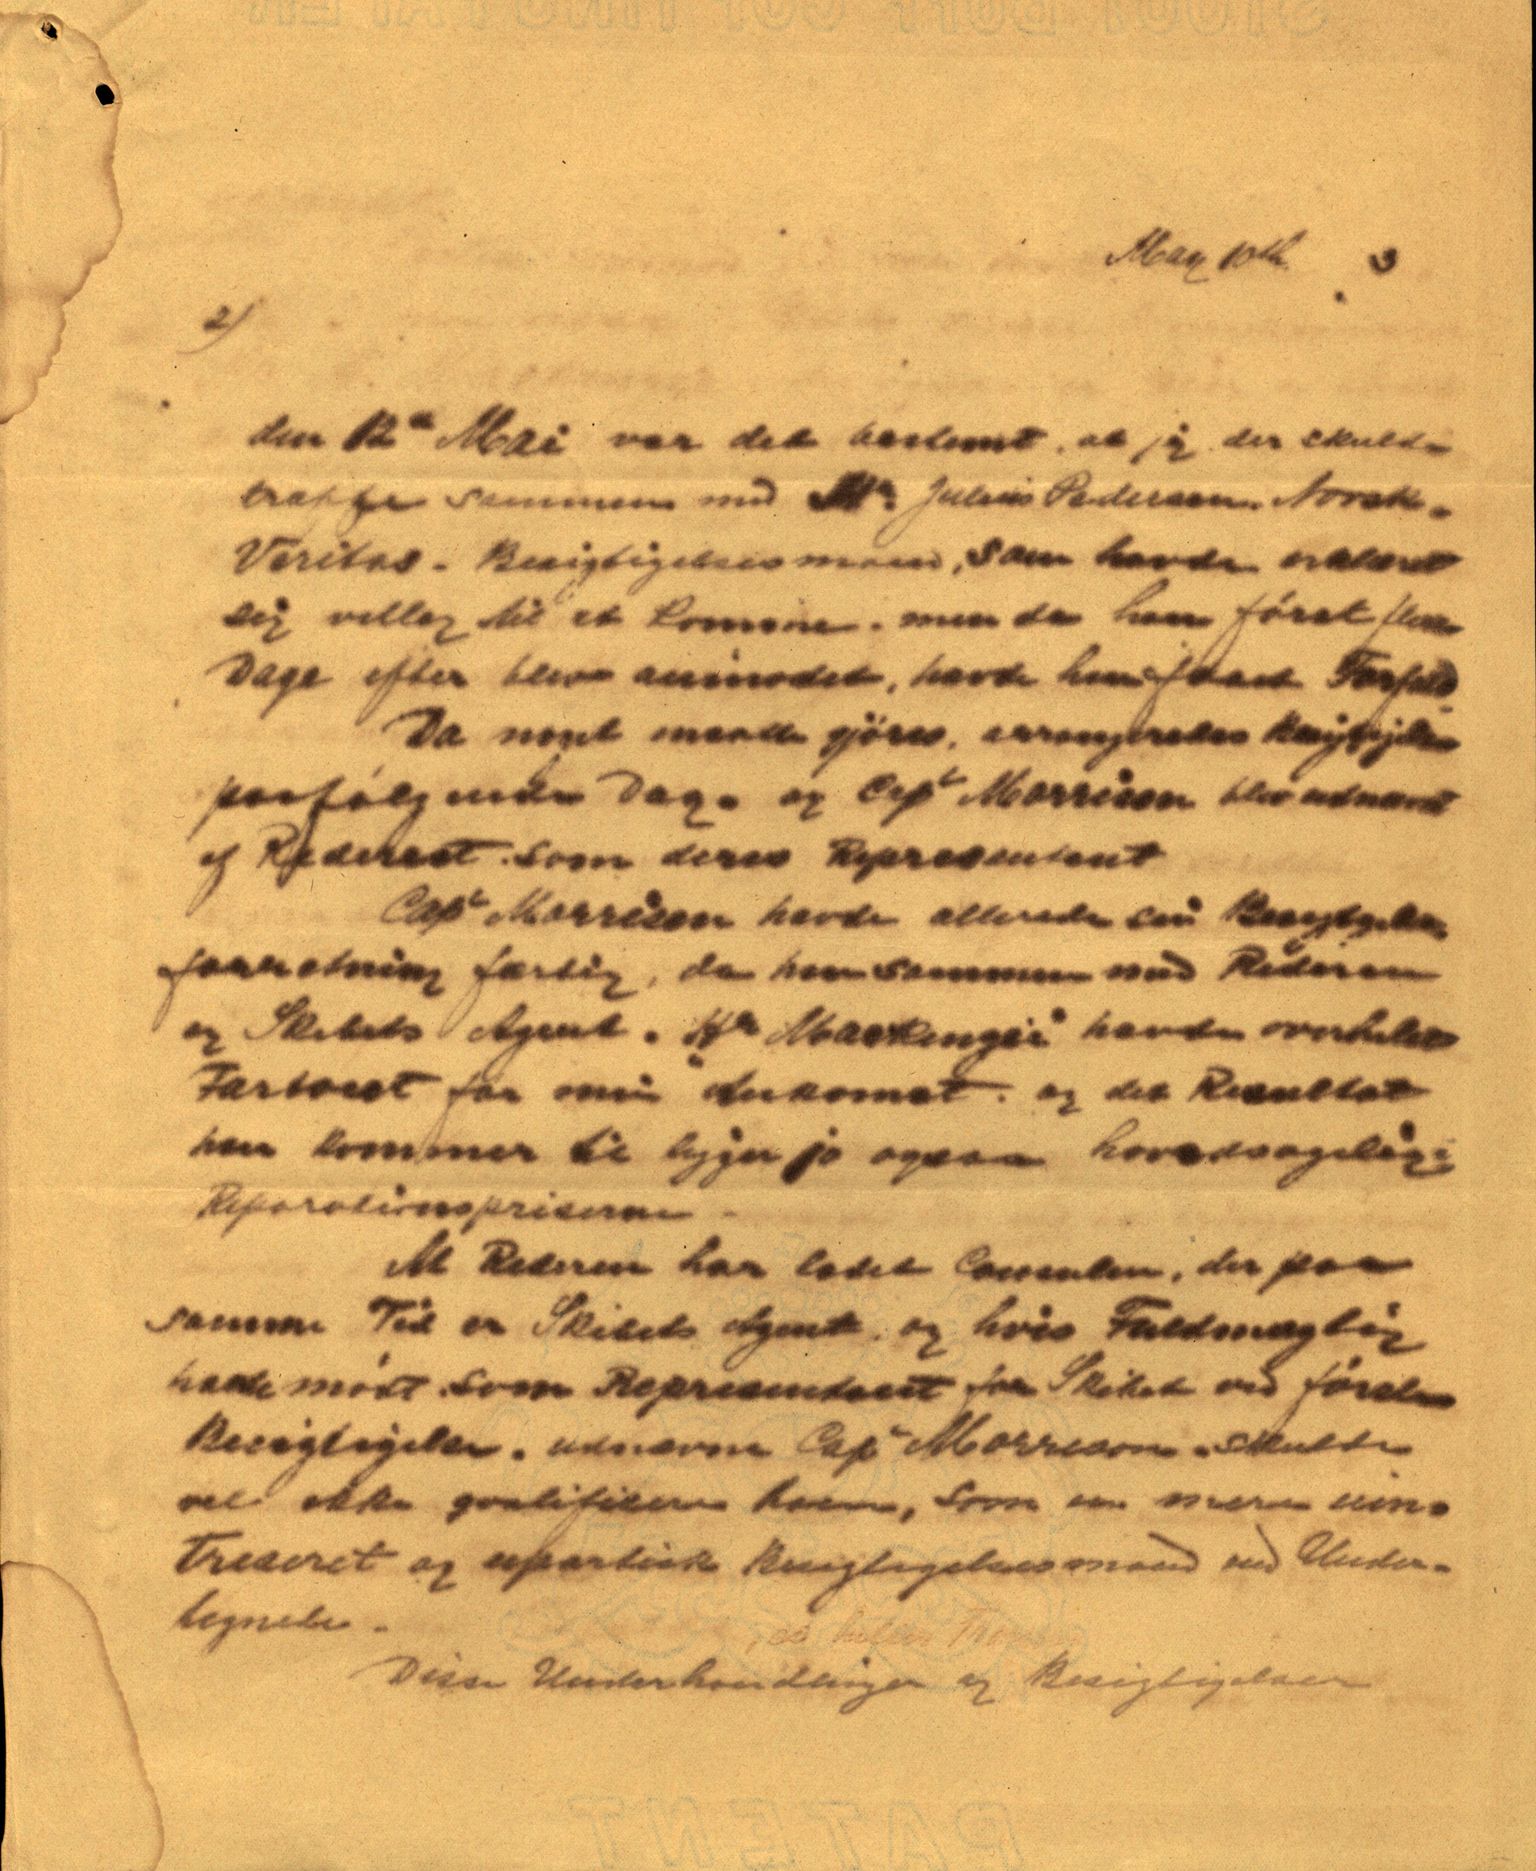 May 10th 3
2)
den 12te Mai var det bestemt, at jeg der skulde
træffe sammen med Mr. Julius Pedersen, Norsk-
Veritas-Besigtigelsesmand, som havde erklæret
sig villig til at komme. men da han först flere
Dage efter blev anmodet, havde han faaet Forfald.
Da noget maatte gjöres, arrangeredes Besigtigelse
paafölgende Dag. og Capt Morrison blev udnævnt
af Rederiet som deres Representant
Capt Morrison havde allerede sin Besigtigelses
forretning færdig, da han sammen med Rederen
og Skibets Agent. Hr Mackenzie havde overhalet
Fartöiet för min Ankomst. og det Resultat
han kommer til bygger jo ogsaa hovedsagelig i
Reparationspriserne -
At Rederen har ladet Consulen, der paa
samme Tid er Skibets Agent, og hvis Fuldmægtig
havde mödt som Representant for Skibet ved förste
Besigtigelse. udnævne Capt Morrison. skulde
vel ikke qvalificere ham, som en mere uin-
tresseret og upartisk Besigtigelsesmand end Under-
tegnede.
Disse Underhandlinger og Besigtigelser
PATENT